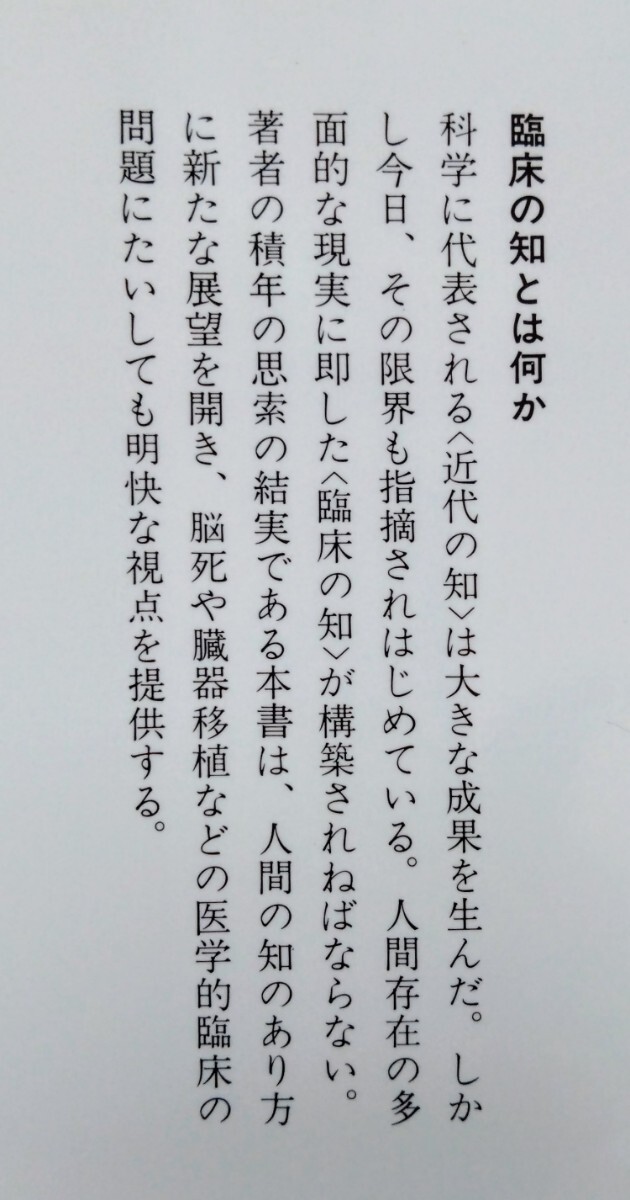 臨床の知とは何か
科学に代表される〈近代の知〉は大きな成果を生んだ。しか
し今日、その限界も指摘されはじめている。人間存在の多
面的な現実に即した〈臨床の知〉が構築されねばならない。
著者の積年の思索の結実である本書は、人間の知のあり方
に新たな展望を開き、脳死や臓器移植などの医学的臨床の
問題にたいしても明快な視点を提供する。